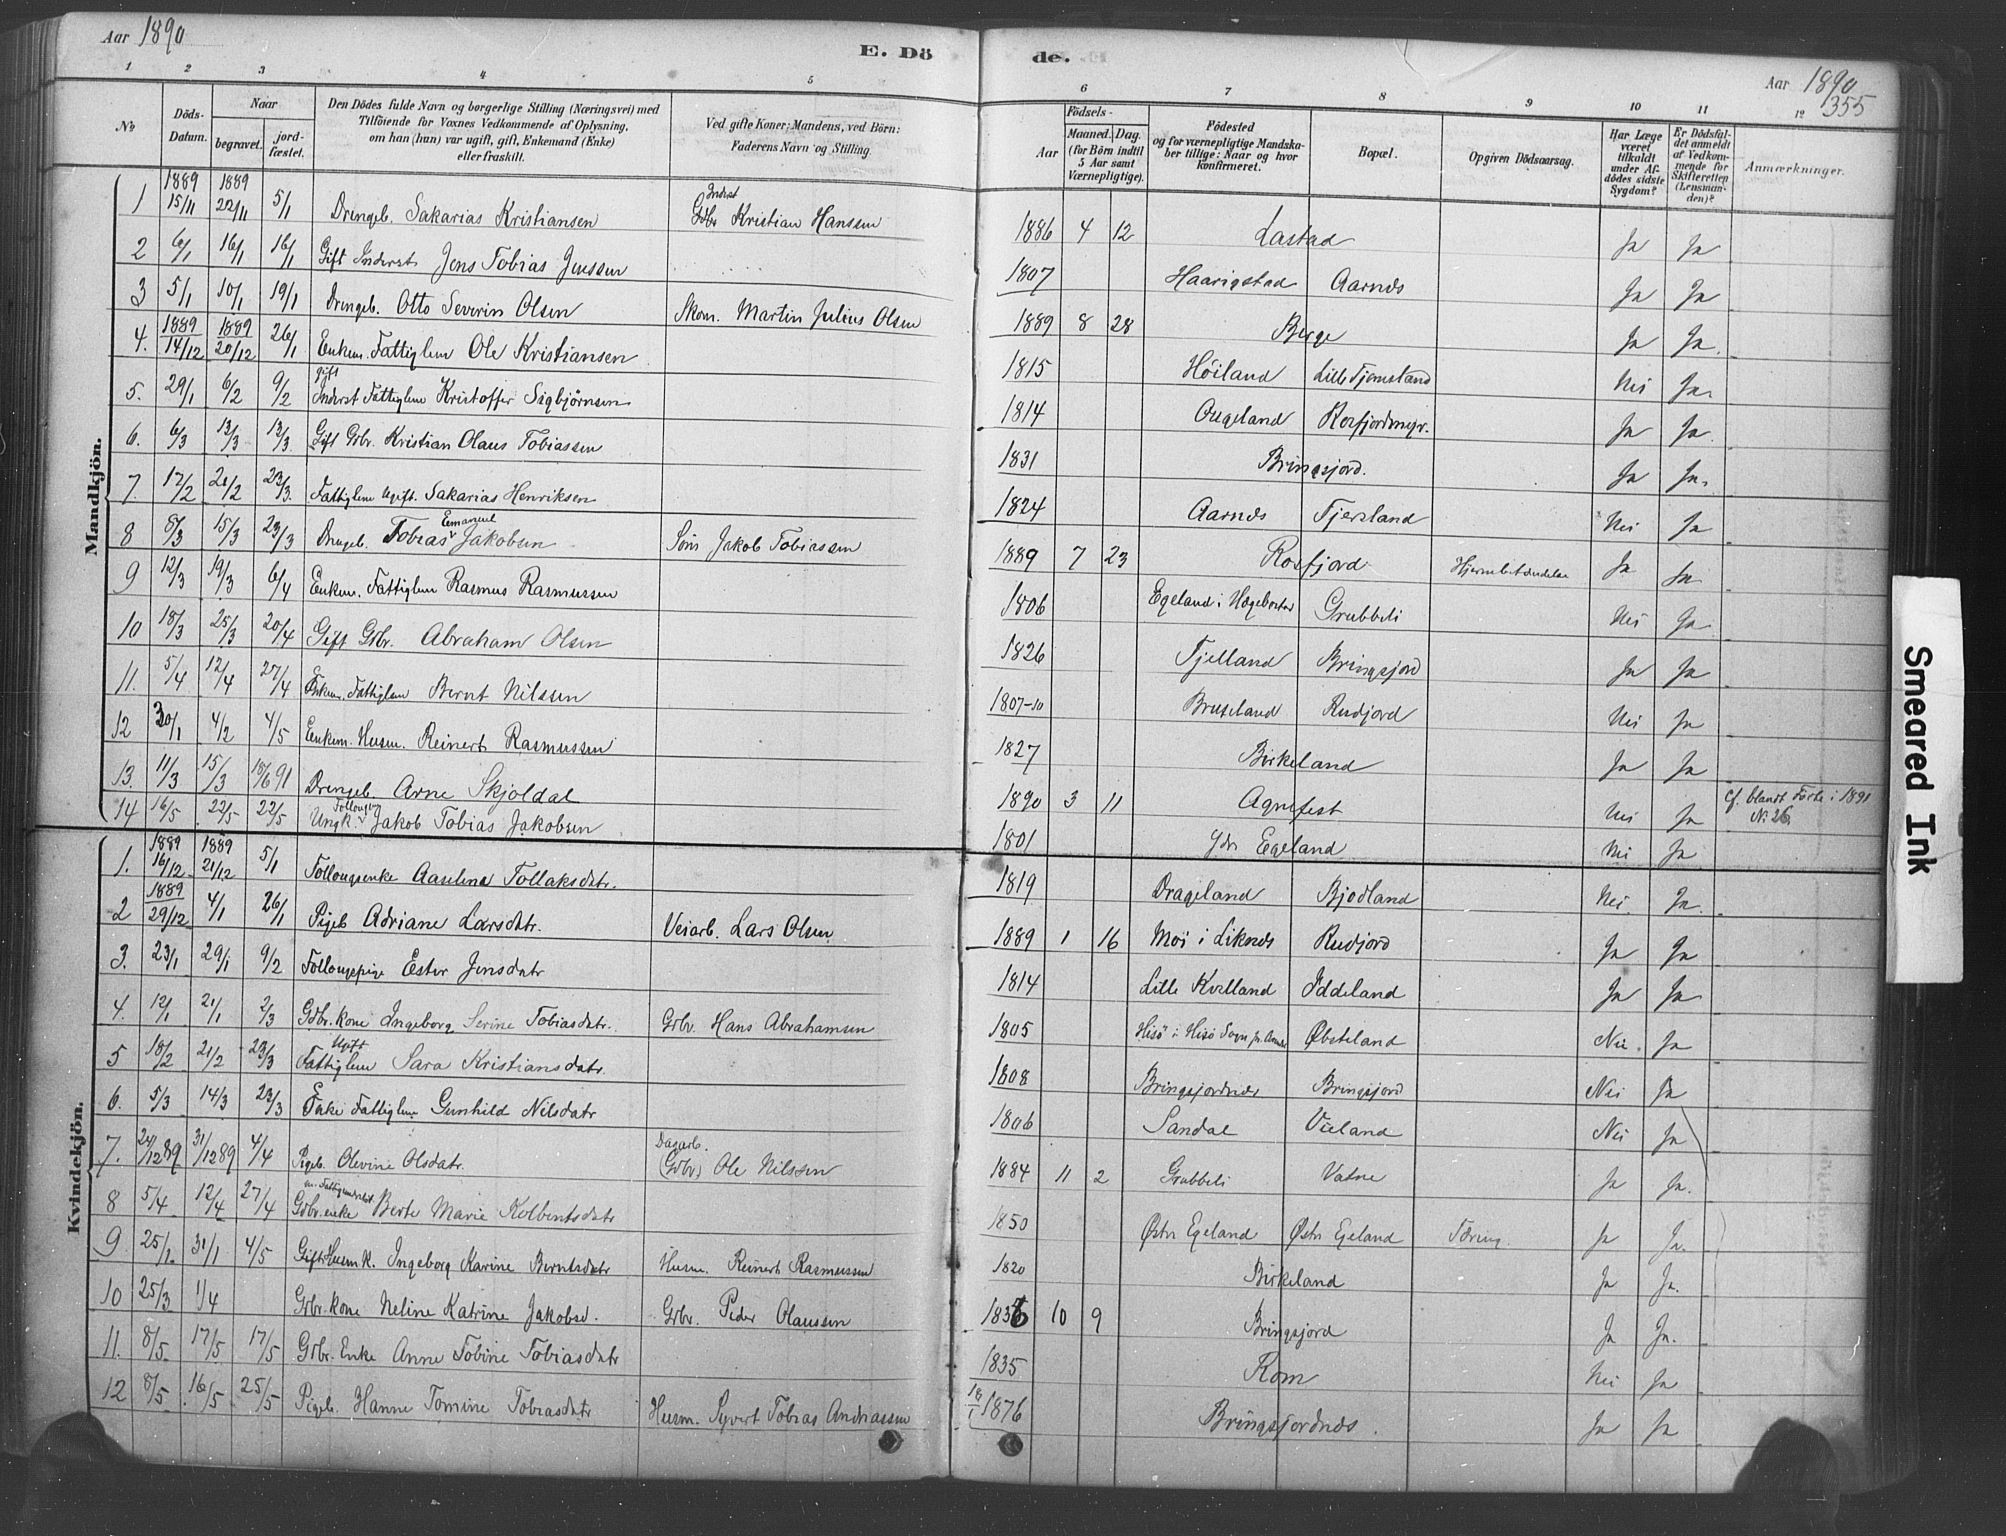 Aar 1890
E. Dö
de.
Aar 1890
355
1 2 3 4 5 6 7 8 9 10 11 12
No
Döds-Datum.
Naar
begravet.
jord-fæstet.
Den Dödes fulde Navn og borgerlige Stilling (Næringsvei) med
Tilföiende for Voxnes Vedkommende af Oplysning,
om han (hun) var ugift, gift, Enkemand (Enke)
eller fraskilt.
Ved gifte Koner: Mandens, ved Börn:
Faderens Navn og Stilling.
Födsels-
Aar
Maaned. Dag.
(for Börn indtil
5 Aar samt
Værnepligtige).
Födested
og for værnepligtige Mandska-
ber tillige: Naar og hvor
konfirmeret.
Bopæl.
Opgiven Dödsaarsag.
Har Læge
været
tilkaldt
under Af-
dödes sidste
Sygdom?
Er Dödsfal-
det anmeldt
af Vedkom-
mende for
Skifteretten
(Lensman-
den)?
Anmærkninger.
Mandkjön.
1 1889 15/11 1889 22/11 5/1 Drengeb. Sakarias Kristiansen Inderst Gdbr Kristian Hanssen 1886 4 12 Lastad Ja Ja
2 6/1 16/1 16/1 Gift Inderst Jens Tobias Jenssen 1807 Haarigstad Aarnes Ja Ja
3 5/1 10/1 19/1 Drengeb. Otto Severin Olsen Skom. Martin Julius Olsen 1889 8 28 Berge Ja Ja.
4. 1889 14/12 1889 20/12 26/1 Enkem. Fattiglem Ole Kristiansen 1815 Höiland Lille Tjomstand Nei Ja.
5. 29/1 6/2 9/2 gift Inderst Fattiglem Kristoffer Sigbjörnsen 1814 Augeland Rosfjord Ja Ja.
6. 6/3 13/3 13/3. Gift Gbr. Kristian Olaus Tobiassen 1831 Bringsjord. Ja Ja.
7. 17/2 21/2 23/3. Fattiglem Ugift. Sakarias Henriksen 1824 Aarnes Tjersland Nei Ja
8 8/3 15/3 23/3 Drengeb. Tobias Emanuel Jakobsen Söm. Jakob Tobiassen 1889 7 23 Rosfjord Hjernebetændelse Ja Ja.
9 12/3 19/3 6/4 Enkem. Fattiglem Rasmus Rasmussen 1806 Egeland i Hægebostad Grubbeli Nei Ja.
10 18/3 25/3 20/4 Gift Gbr. Abraham Olsen 1826 Tjelland Bringsjord Ja Ja
11. 5/4 12/4 27/4 Enkem. Fattiglem Bernt Nilssen 1807-10 Bruseland Rudjord Nei Ja
12 30/1 4/2 4/5 Enkem. Husm. Reinert Rasmussen 1827 Birkeland Ja Ja
13. 11/3 15/3 18/6 91 Drengeb. Arne Skjöldal 1890 3 11 Agnefest Nei Ja Cf. blandt Födte i 1891 No. 26.
14 16/5 22/5 22/5 Ungk. Jakob Tobias Jakobsen 1801 Ydr Egeland Nei Ja
Kvindekjön.
1. 1889 16/12 1889 21/12 5/1 Follougsenke Aaselena Tollaksdatr. 1819 Drageland Bjodland Nei. Ja.
2 1889 29/12 4/1 26/1 Pigeb Adriane Larsdatr. Veiarb. Lars Olsen 1889 1 16 Moi i Liknes Rudjord Ja Ja
3. 23/1 29/1 9/2 Follougspige Ester Jensdatr 1814 Lille Kvelland Iddeland Ja Ja.
4. 12/1 21/1 2/3 Gdbr.kone Ingeborg Serine Tobiasdatr. Gbr. Hans Abrahamsen 1805 Hisö i Hisö Sogn pr. Arendal Öbsteland Nei. Ja
5 18/2 21/2 23/3 Ugift Fattiglem Sara Kristiansdatr. 1808 Bringsjordnes Bringsjord Nei Ja
6. 5/3 14/3 23/3 Enke Fattiglem Gunhild Nilsdatr 1806 Sandal Vieland Nei Ja
7. 24/12 89 31/12 89 4/4 Pigeb. Olevine Olsdatr. Dagarb. (Gdbr) Ole Nilssen 1884 11 2 Grubbeli Vatne Ja Ja.
8 5/4 12/4 27/4 Gdbr.enke Berte Marie Kolbentsdatr 1850 Östre Egeland Östre Egeland Tæring. Ja Ja.
9 25/1. 31/1 4/5 Gift Husmk. Ingeborg Karine Berntsdatr Husm. Reinert Rasmussen 1820 Birkeland Ja Ja.
10 25/3 1/4 Gbr.kone Neline Katrine Jakobsd. Gbr. Peder Olaussen 1836 10 9 Bringsjord Ja Ja.
11. 8/5 17/5 17/5 Gbr. Enke Anne Tobine Tobiasdatr 1835 Rom Nei Ja
12 8/5. 16/5 25/5 Pigeb. Hanne Tomine Tobiasdatr Husm. Syvert Tobias Andreassen 18/1 1876 Bringsjordnes. Ja Ja
Smeared Ink